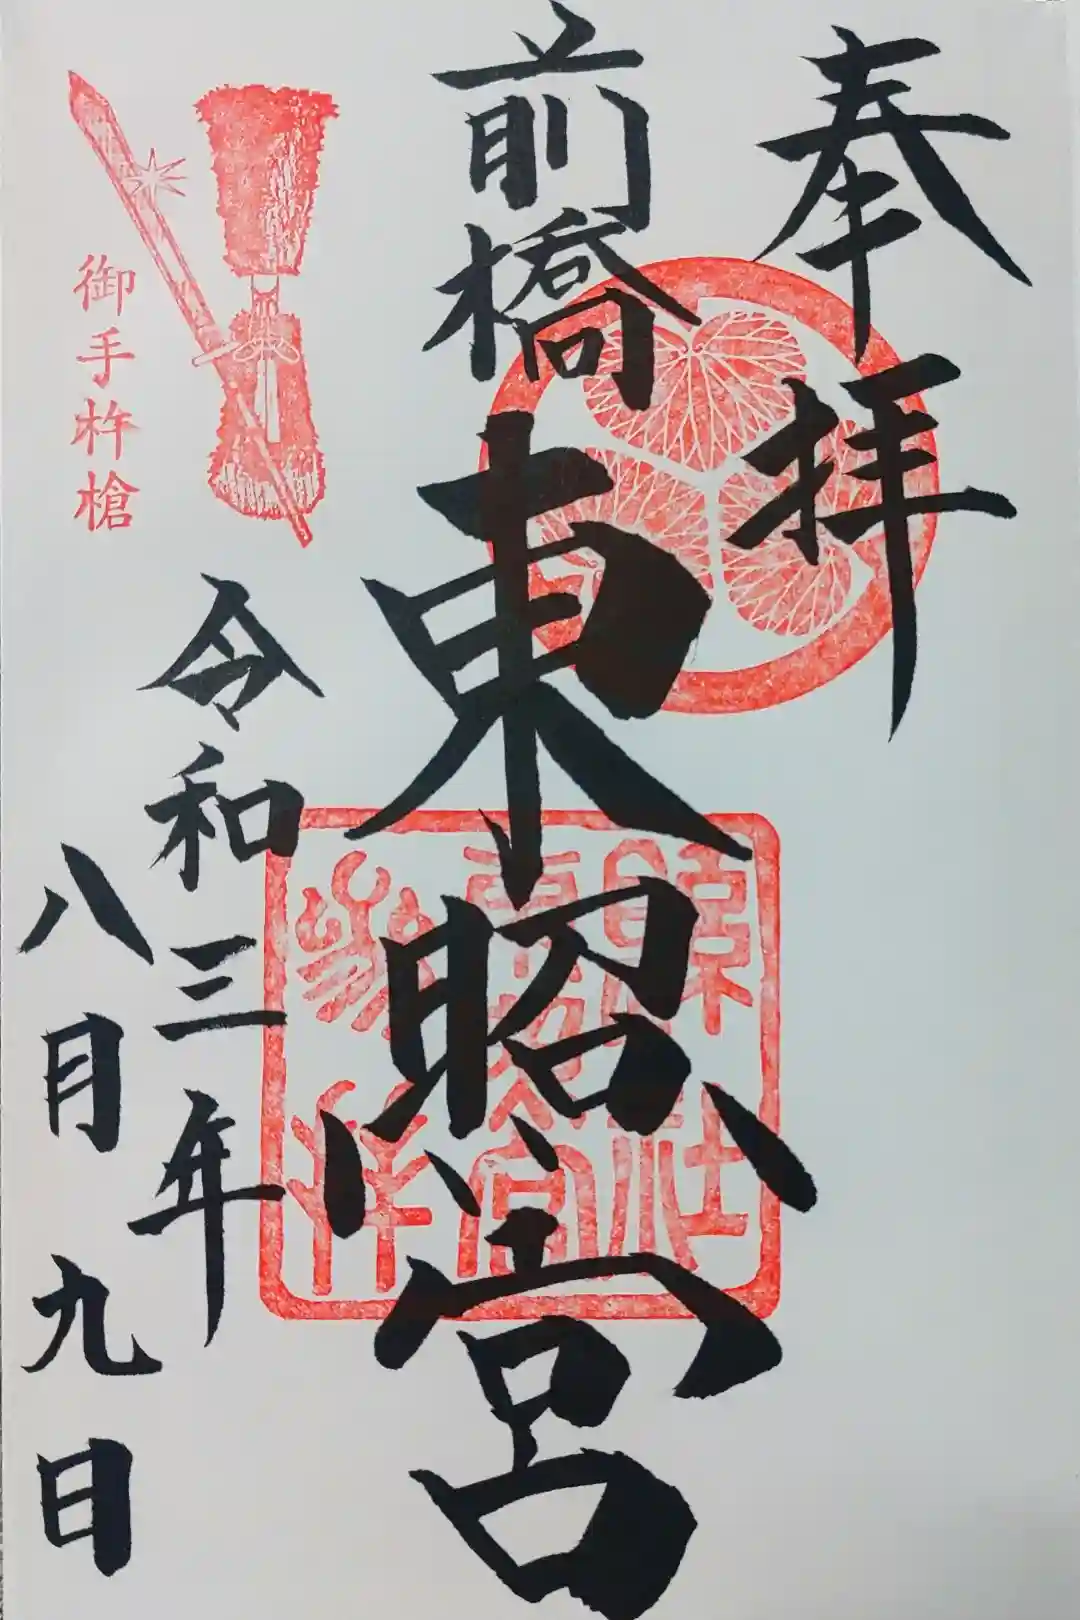 奉拝
前橋東照宮
縣社
東照宮
参拝
令和三年
八月九日
御手杵槍